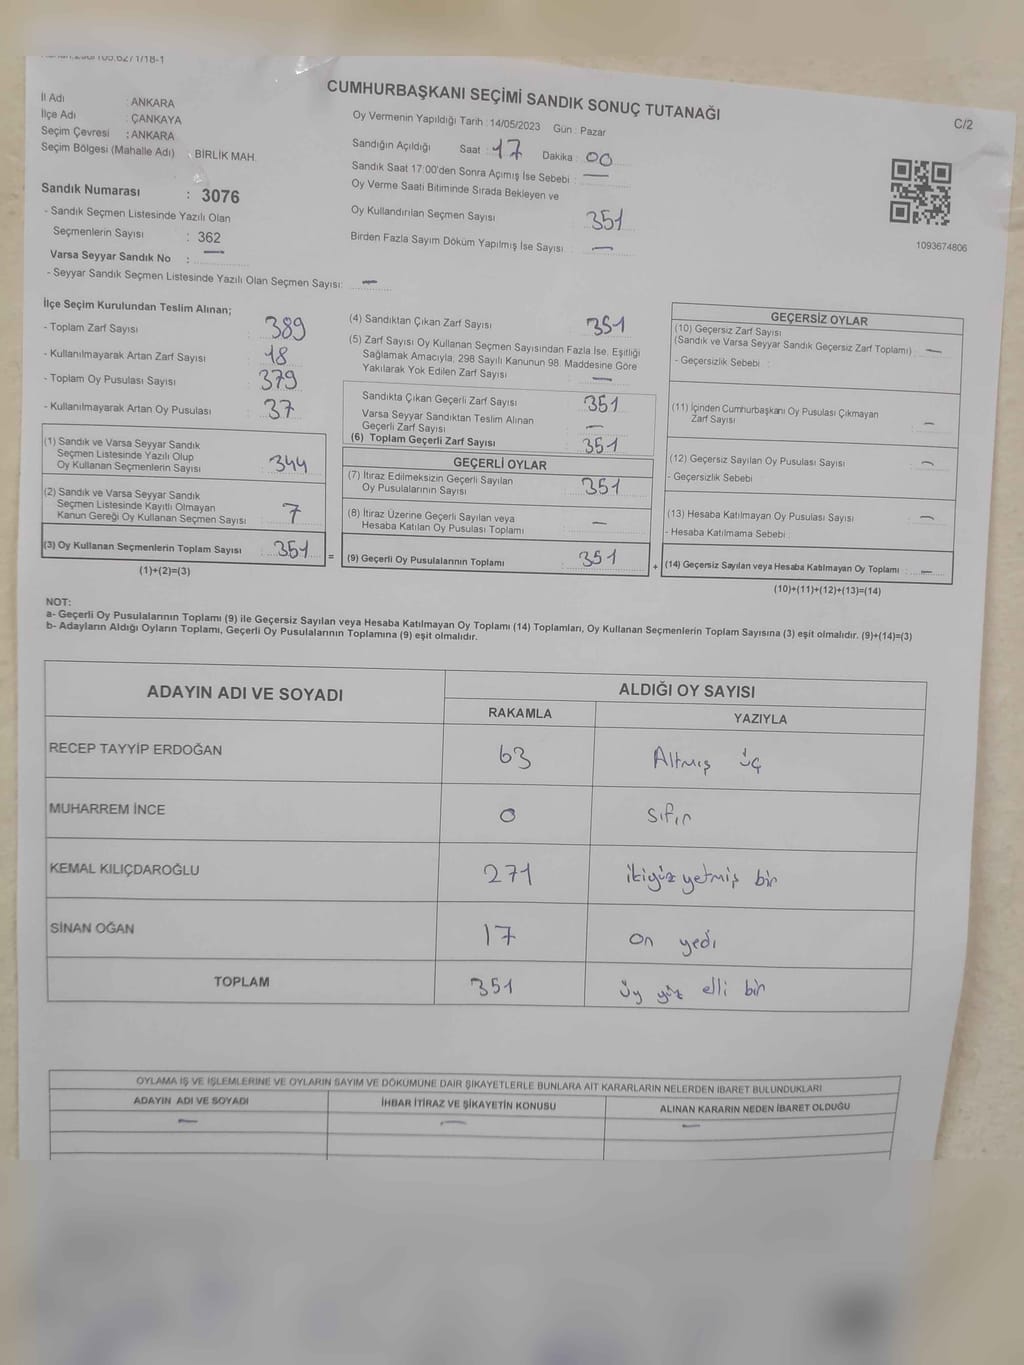 CUMHURBAŞKANI SEÇİMİ SANDIK SONUÇ TUTANAĞI
C/2
İl Adı : ANKARA
İlçe Adı : ÇANKAYA
Seçim Çevresi : ANKARA
Seçim Bölgesi (Mahalle Adı) : BİRLİK MAH.
Sandık Numarası : 3076
- Sandık Seçmen Listesinde Yazılı Olan
Seçmenlerin Sayısı : 362
Varsa Seyyar Sandık No : —
- Seyyar Sandık Seçmen Listesinde Yazılı Olan Seçmen Sayısı: —
Oy Vermenin Yapıldığı Tarih : 14/05/2023 Gün : Pazar
Sandığın Açıldığı Saat : 17 Dakika : 00
Sandık Saat 17:00'den Sonra Açmış İse Sebebi : —
Oy Verme Saati Bitiminde Sırada Bekleyen ve
Oy Kullandırılan Seçmen Sayısı 351
Birden Fazla Sayım Döküm Yapılmış İse Sayısı : —
1093674806
İlçe Seçim Kurulundan Teslim Alınan;
- Toplam Zarf Sayısı : 389
- Kullanılmayarak Artan Zarf Sayısı : 18
- Toplam Oy Pusulası Sayısı : 379
- Kullanılmayarak Artan Oy Pusulası : 37
(1) Sandık ve Varsa Seyyar Sandık
Seçmen Listesinde Yazılı Olup
Oy Kullanan Seçmenlerin Sayısı : 344
(2) Sandık ve Varsa Seyyar Sandık
Seçmen Listesinde Kayıtlı Olmayan
Kanun Gereği Oy Kullanan Seçmen Sayısı : 7
(3) Oy Kullanan Seçmenlerin Toplam Sayısı : 351
(1)+(2)=(3)
=
(4) Sandıktan Çıkan Zarf Sayısı 351
(5) Zarf Sayısı Oy Kullanan Seçmen Sayısından Fazla İse, Eşitliği
Sağlamak Amacıyla, 298 Sayılı Kanunun 98. Maddesine Göre
Yakılarak Yok Edilen Zarf Sayısı —
Sandıkta Çıkan Geçerli Zarf Sayısı 351
Varsa Seyyar Sandıktan Teslim Alınan
Geçerli Zarf Sayısı —
(6) Toplam Geçerli Zarf Sayısı 351
GEÇERLİ OYLAR
(7) İtiraz Edilmeksizin Geçerli Sayılan
Oy Pusulalarının Sayısı 351
(8) İtiraz Üzerine Geçerli Sayılan veya
Hesaba Katılan Oy Pusulası Toplamı —
(9) Geçerli Oy Pusulalarının Toplamı 351
+
GEÇERSİZ OYLAR
(10) Geçersiz Zarf Sayısı
(Sandık ve Varsa Seyyar Sandık Geçersiz Zarf Toplamı) : —
- Geçersizlik Sebebi :
(11) İçinden Cumhurbaşkanı Oy Pusulası Çıkmayan
Zarf Sayısı —
(12) Geçersiz Sayılan Oy Pusulası Sayısı —
- Geçersizlik Sebebi
(13) Hesaba Katılmayan Oy Pusulası Sayısı —
- Hesaba Katılmama Sebebi :
(14) Geçersiz Sayılan veya Hesaba Katılmayan Oy Toplamı : —
(10)+(11)+(12)+(13)=(14)
NOT:
a- Geçerli Oy Pusulalarının Toplamı (9) ile Geçersiz Sayılan veya Hesaba Katılmayan Oy Toplamı (14) Toplamları, Oy Kullanan Seçmenlerin Toplam Sayısına (3) eşit olmalıdır. (9)+(14)=(3)
b- Adayların Aldığı Oyların Toplamı, Geçerli Oy Pusulalarının Toplamına (9) eşit olmalıdır.
ADAYIN ADI VE SOYADI ALDIĞI OY SAYISI
RAKAMLA YAZIYLA
RECEP TAYYİP ERDOĞAN 63 Altmış üç
MUHARREM İNCE 0 sıfır
KEMAL KILIÇDAROĞLU 271 ikiyüz yetmiş bir
SİNAN OĞAN 17 on yedi
TOPLAM 351 üç yüz elli bir
OYLAMA İŞ VE İŞLEMLERİNE VE OYLARIN SAYIM VE DÖKÜMÜNE DAİR ŞİKAYETLERLE BUNLARA AİT KARARLARIN NELERDEN İBARET BULUNDUKLARI
ADAYIN ADI VE SOYADI İHBAR İTİRAZ VE ŞİKAYETİN KONUSU ALINAN KARARIN NEDEN İBARET OLDUĞU
— — —